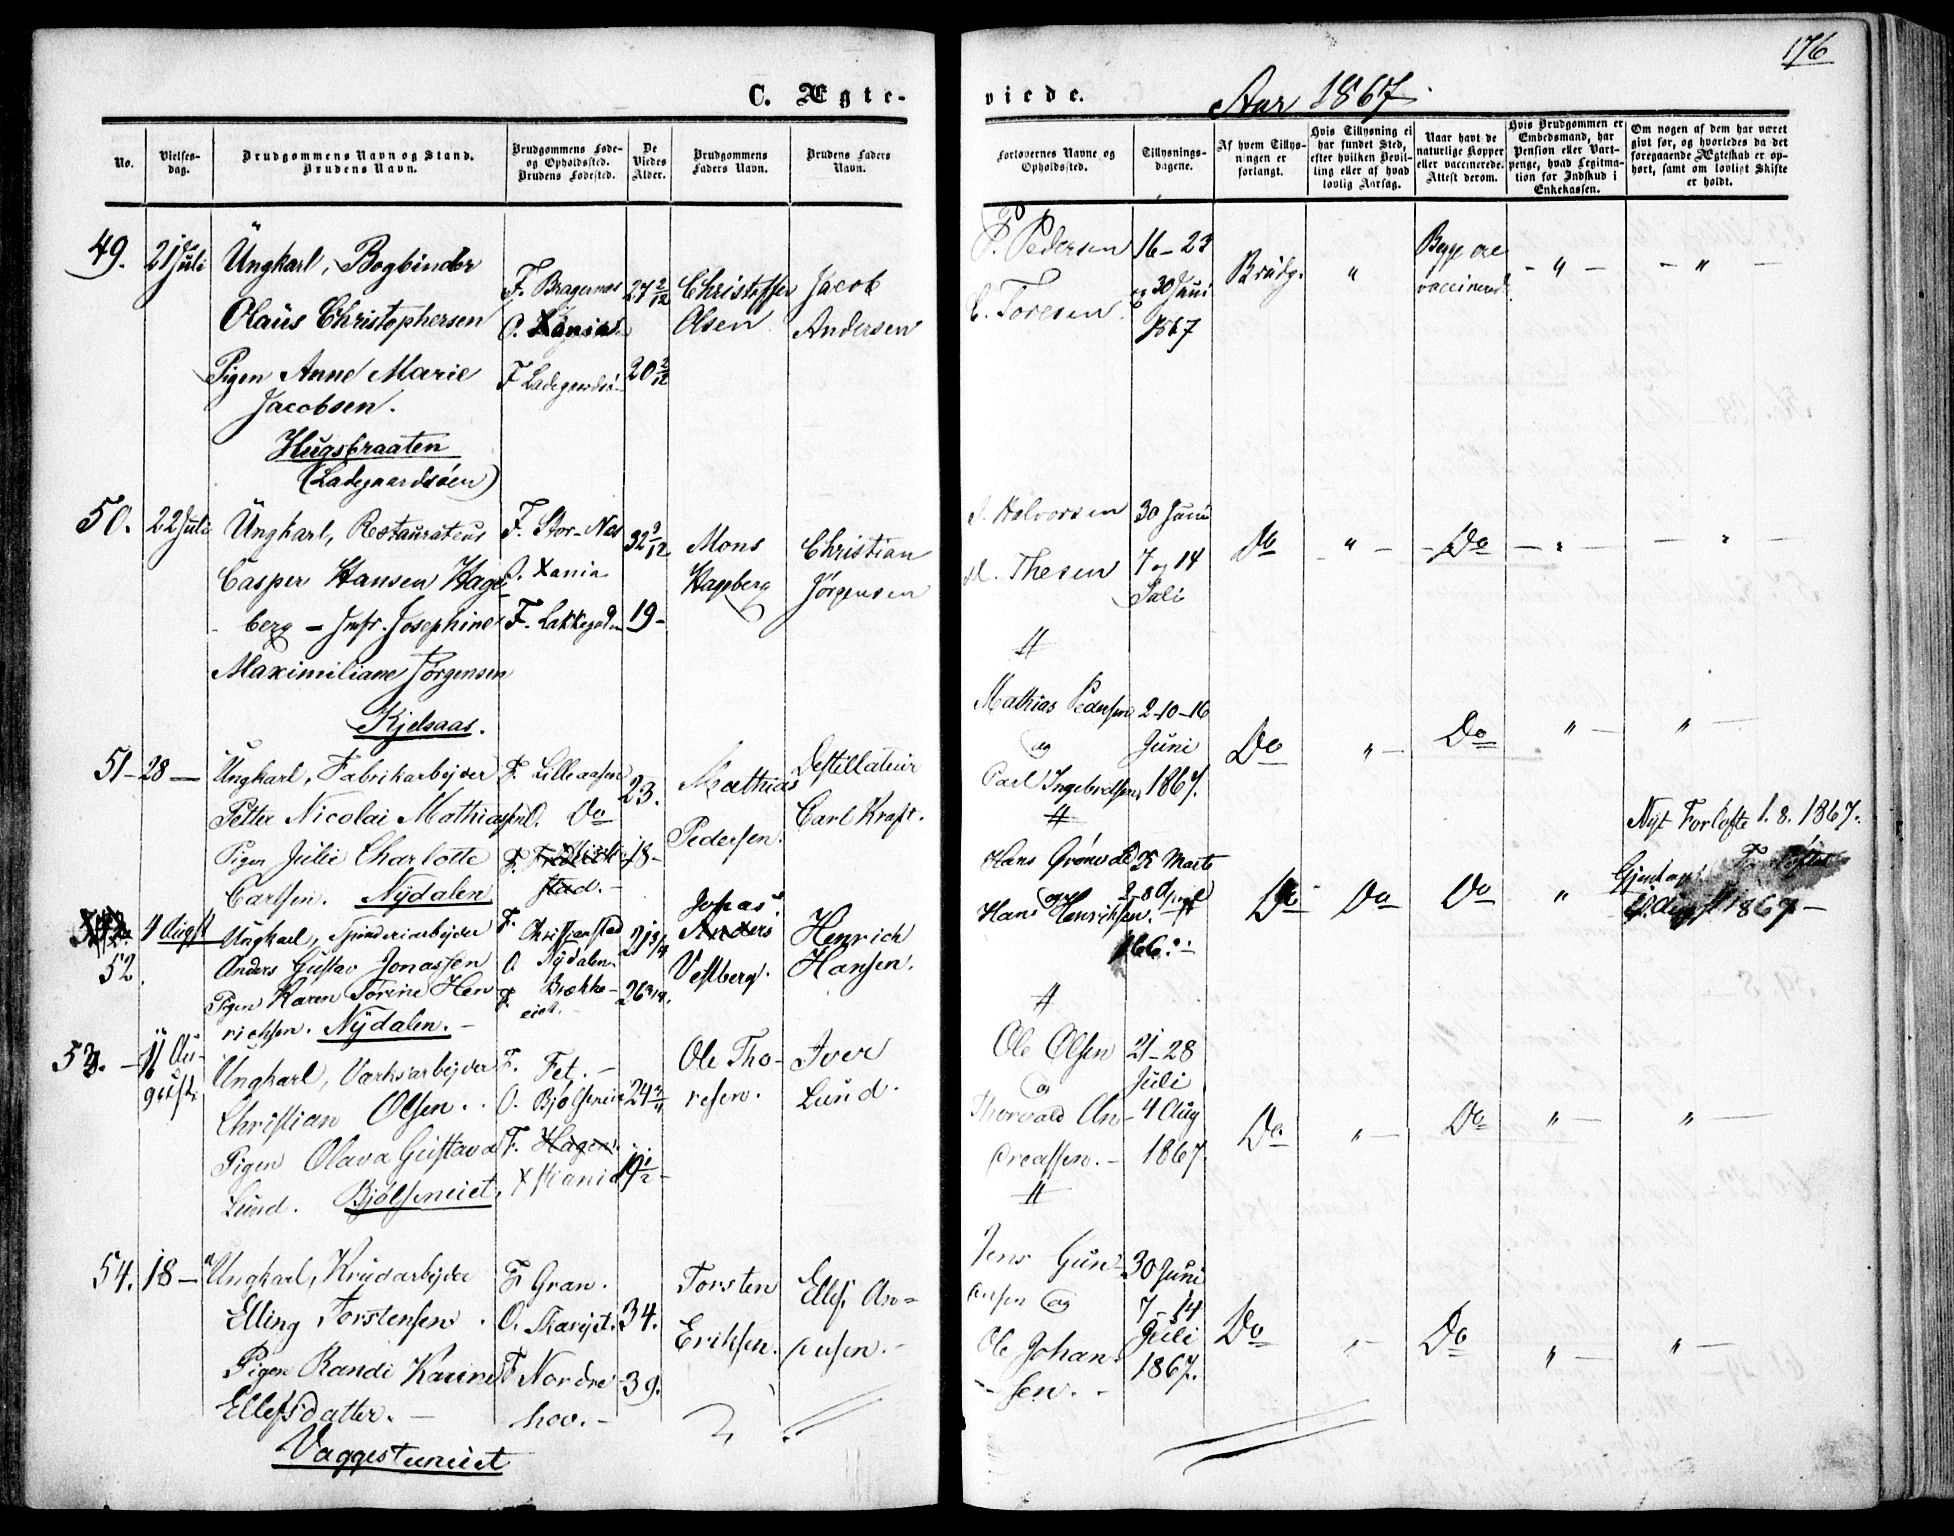 176
C. Ægte-
viede.
Aar 1867.
No.
Vielses-
dag.
Brudgommens Navn og Stand.
Brudens Navn.
Brudgommens Føde-
og Opholdssted.
Brudens Fødested.
De
Viedes
Alder.
Brudgommens
Faders Navn.
Brudens Faders
Navn.
Forlovernes Navne og
Opholdssted.
Tillysnings-
dagene.
Af hvem Tillys-
ningen er
forlangt.
Hvis Tillysning ei
har fundet Sted,
efter hvilken Bevil-
ling eller af hvad
lovlig Aarsag.
Naar havt de
naturlige Kopper
eller vaccinerede.
Attest derom.
Hvis Brudgommen er
Embedsmand, har
Pension eller Vart-
penge, hvad Legitma-
tion for Indskud i
Enkekassen.
Om nogen af dem har været
gift før, og hvorledes da det
foregaaende Ægteskab er op-
hørt, samt om lovligt Skifte
er holdt.
49. 21 de Juli
Ungkarl, Bogbinder
Olaus Christophersen
Pigen Anne Marie
Jacobsen.
Hugsbraaten
(Ladegaardsøen)
F. Bragernæs
O. Xania
F Ladegaardsø
27 2/12
20 2/12
Christoffer
Olsen
Jacob
Andersen
P. Pedersen
C. Toresen
16 - 23
og 30 Juni
1867
Brudg.
"
Begge ere
vaccinered
- " -
- " -
50. 22 Juli
Ungkarl, Restaurateur
Casper Hansen Hage-
berg - Jmfr. Josephine
Maximiliane Jørgensen
Kjelsaas.
F. Stor-Næs
O. Xania
F. Lakkegaden
32 9/12
19 -
Mons
Hageberg
Christian
Jørgensen
J. Halvorsen
M. Thesen
30 Juni
7 og 14
Juli
Do
" -
- Do -
51 - 28 -
Ungkarl, Fabrikarbejder
Petter Nicolai Mathiassen
Pigen Julie Charlotte
Carlsen. Nydalen
F. Lilleaasen
O. Do
F. Fredrik-
stad. -
23.
18 -
Mathias
Pedersen.
Destillateur
Carl Kraft.
Mathias Pedersen
og
Carl Ingebretsen
2-10-16
Juni
1867.
Do
" -
Do
"
" -
52. 4 Augst
Ungkarl, Spinderiarbejder
Anders Gustav Jonassen
Pigen Karen Torine Hen
richsen. Nydalen. -
F. Christianstad
O. Nydalen.
F. Brække-
eiet. -
Jonas
Anders
Vestberg.
Henrich
Hansen.
Hans
og
Hans Henriksen.
25 Marts
2-8 April
Do
Do
Do
"
Nyt Forløfte 1. 8. 1867.
1867 -
53. - 11 Au-
gust.
Ungkarl, Værksarbejder
Christian Olsen.
Pigen Olava Gustava
Lund. Bjølseneiet.
F. Fet. -
O. Bjølseneiet
F. Hagen.
Xstiania
Ole Tho-
resen.
Iver
Lund.
Ole Olsen
og
Thorvald An-
dreassen. -
21 - 28
Juli
4 Aug
1867.
Do
" -
Do
" -
" -
54. 18 -
Ungkarl, Krudarbejder
Elling Torstensen.
Pigen Randi Karine
Ellefsdatter. -
Vaggestuneiet
F Gran.
O. Skarejet.
F Nordre
hov. -
34.
39.
Torsten
Eriksen.
Ellef An-
Jens Gun-
og
Ole Johan-
sen. -
30 Juni
7 - 14
Juli
1867.
Do
" -
Do
" -
" -